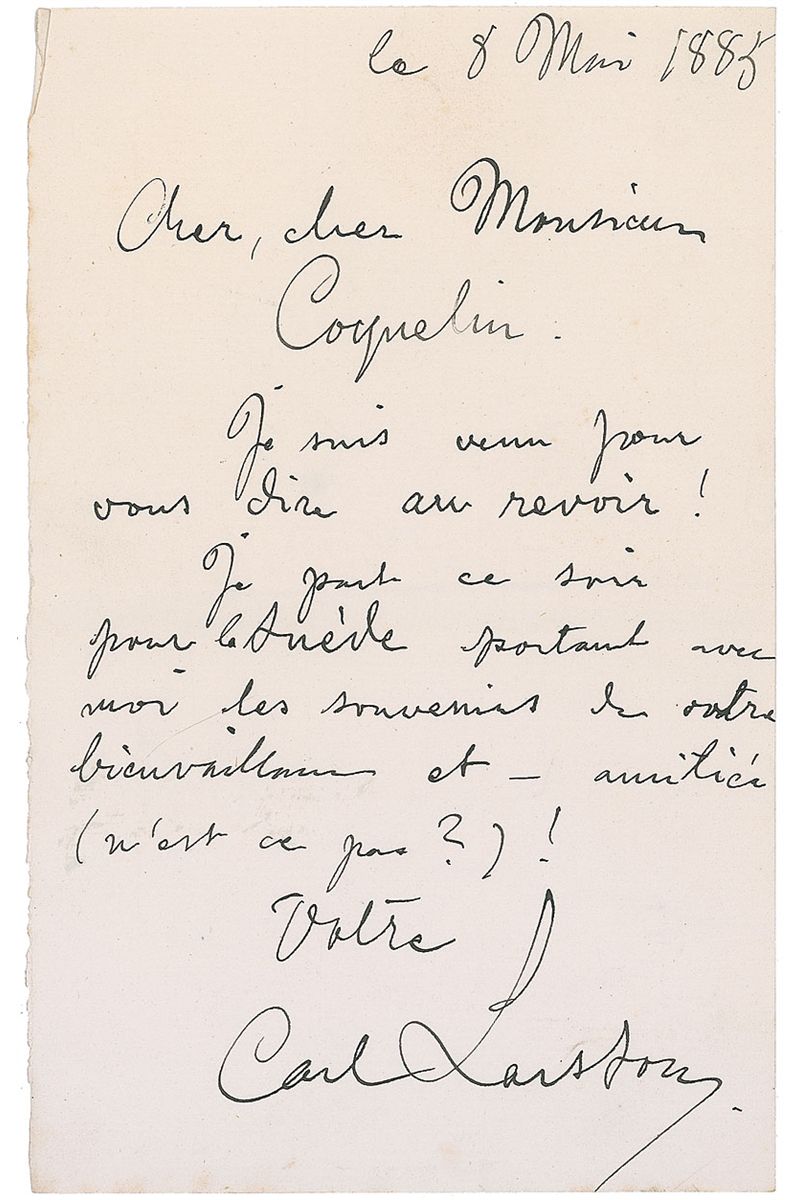 le 8 Mai 1885
Cher, cher Monsieur
Coquelin.
Je suis venu pour
vous dire au revoir!
Je part ce soir
pour la Suède portant avec
moi les souvenirs de votre
bienvaillance et – amitiée
(n'est ce pas?)!
Votre
Carl Larsson.